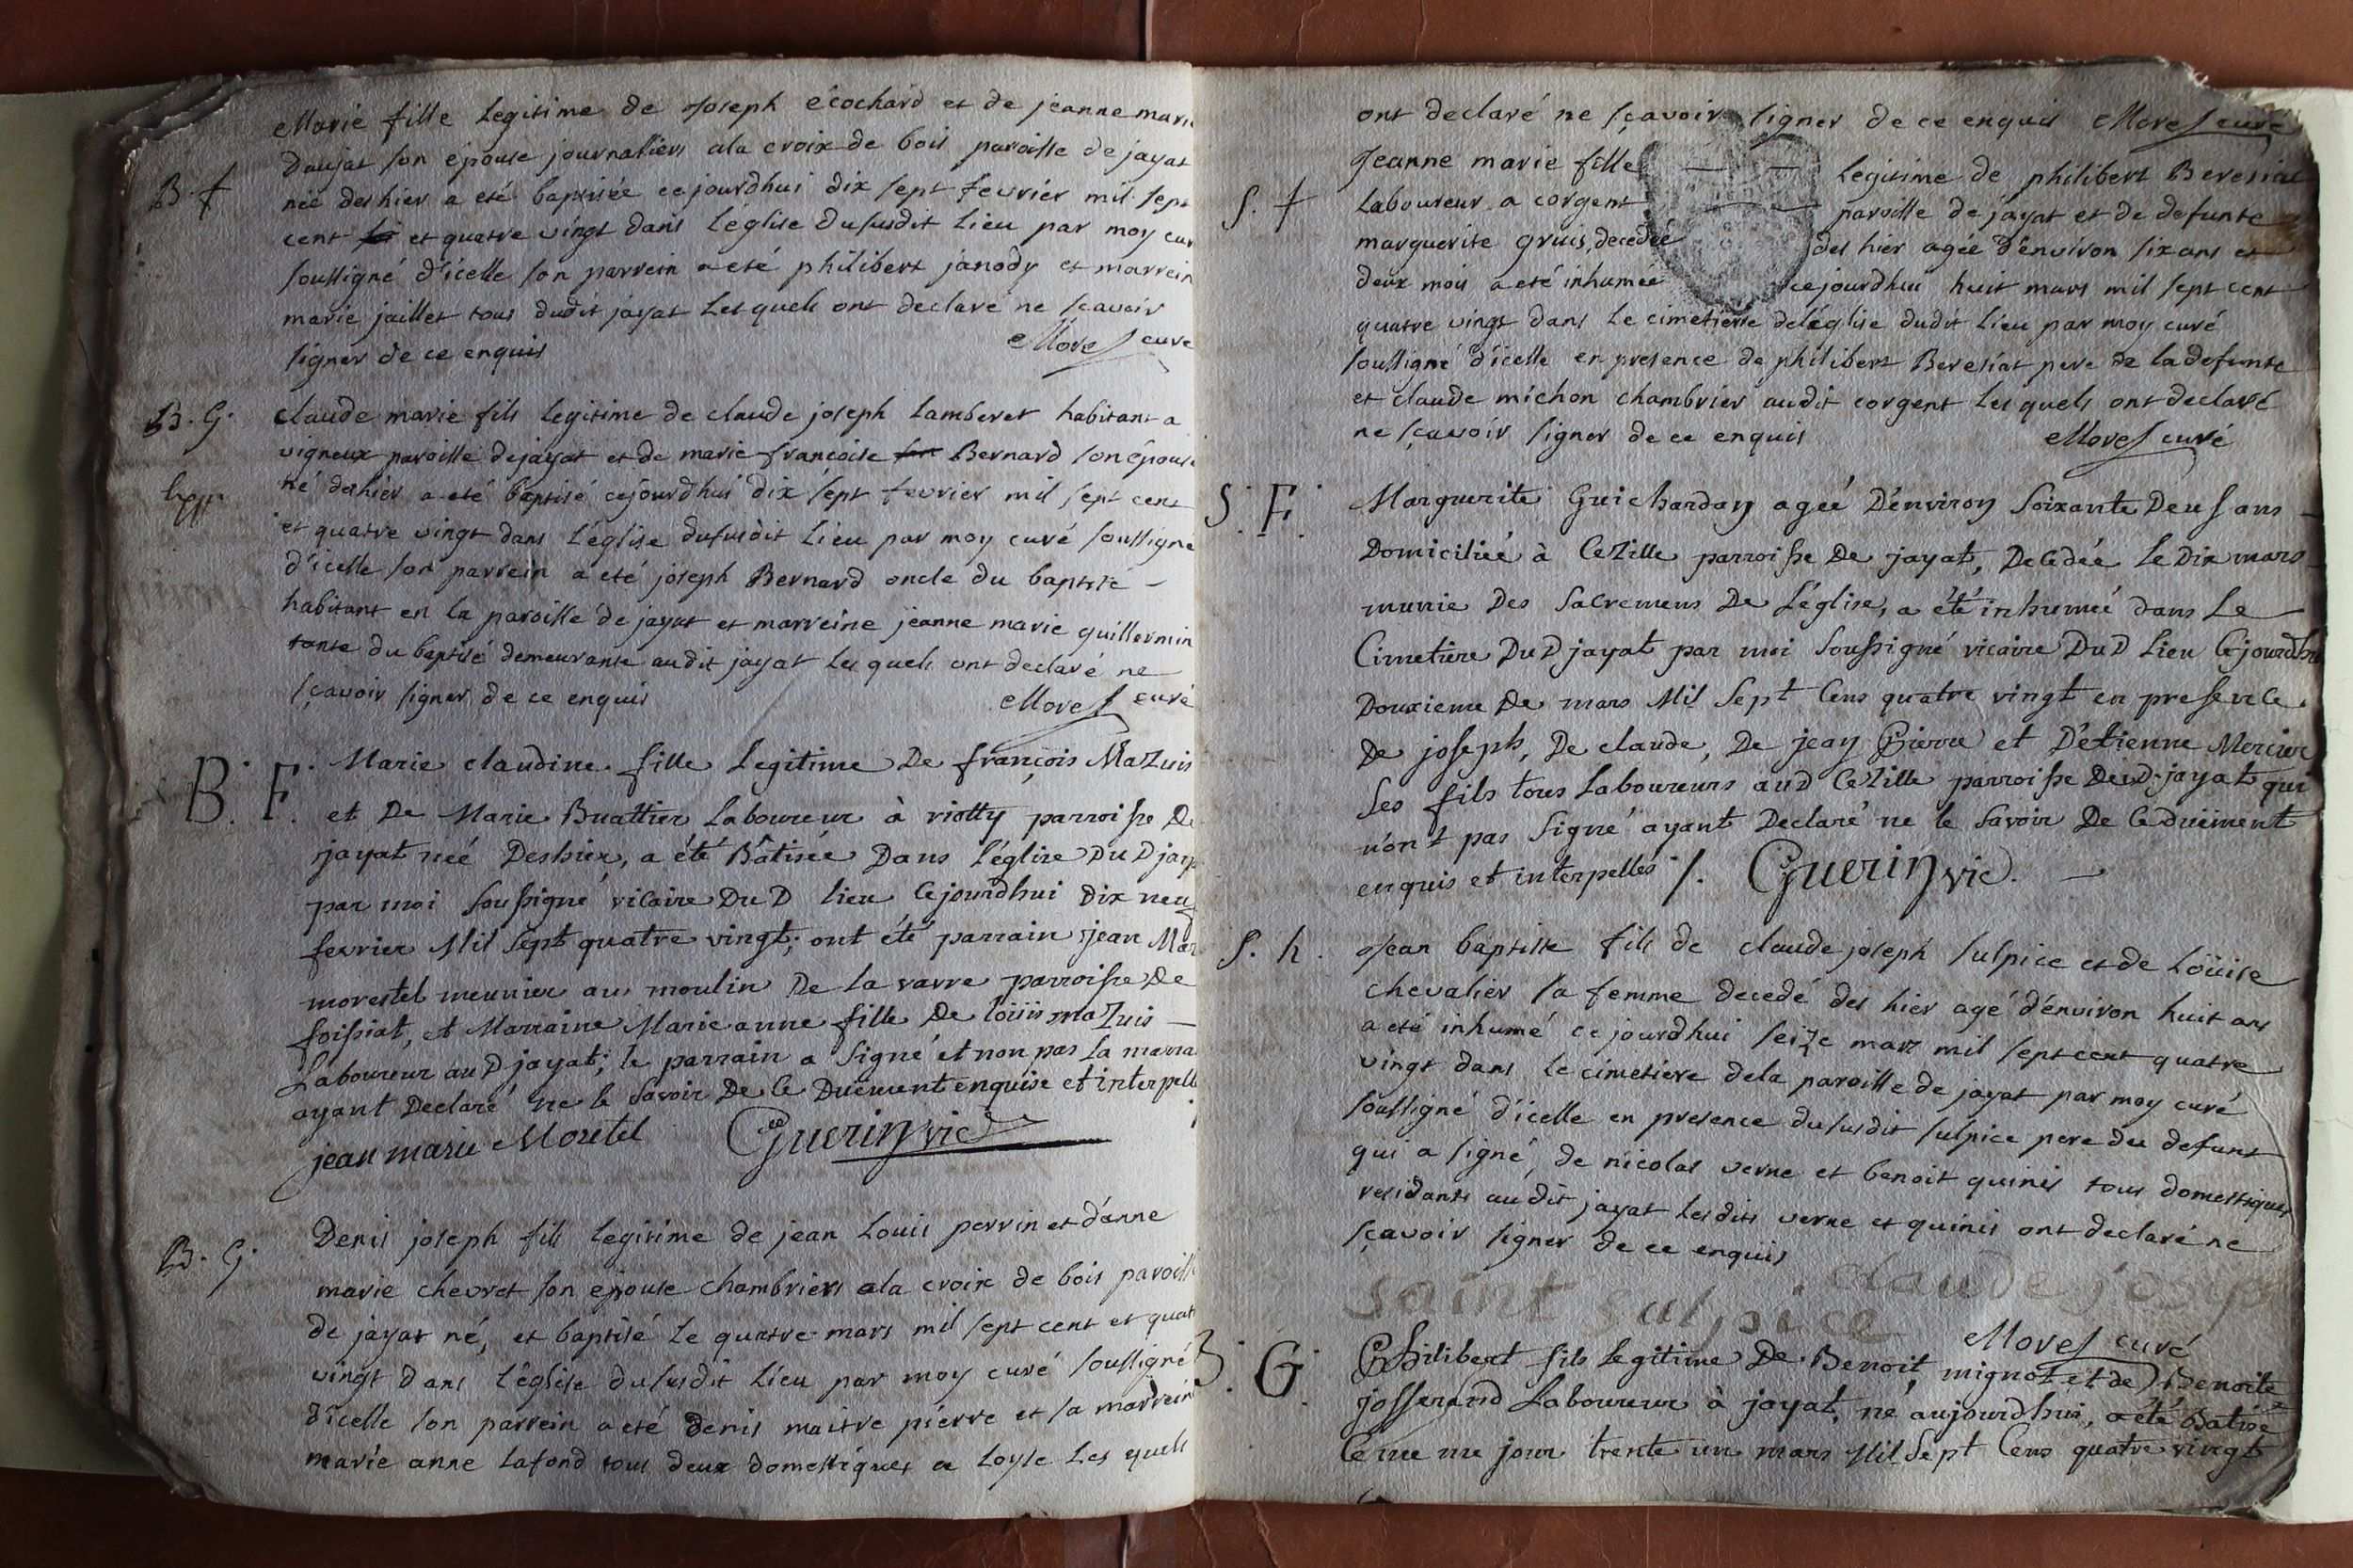 Marie fille legitime de Joseph écochard et de jeanne marie
son épouse journaliers ala croix de bois paroisse de jayat
B. f
née des hier a eté baptisée cejourdhui dix sept fevrier mil sept
cent et quatre vingt dans l'église dususdit lieu par moy cur
soussigné d'icelle son parrein a eté philibert janody et marrein
marie jaillet tous dudit jayat lesquels ont declaré ne sçavoir
signer de ce enquis Morel curé
B. G. claude marie fils legitime de claude joseph lamberet habitant a
vigneux paroisse dejayat et de marie francoise Bernard son épouse
né deshier a eté baptisé cejourdhui dix sept fevrier mil sept cent
et quatre vingt dans l'église dususdit lieu par moy curé soussigné
d'icelle son parrein a eté joseph Bernard oncle du baptisé –
habitant en la paroisse de jayat et marreine jeanne marie guillermin
tante du baptisé demeurante audit jayat lesquels ont declaré ne
sçavoir signer de ce enquis Morel curé
B. F. Marie claudine fille legitime De françois Mazuis
et De Marie Buattier Laboureur à viotty parroisse De
jayat neé Deshier, a été Bâtisée Dans l'église DuD jaya
par moi soussigné vicaire DuD lieu cejourdhui dix neuf
fevrier Mil sept quatre vingt; ont été parrain jean Mar
morestel meunier au moulin De la varre parroisse De
foissiat, et Marraine Marie anne fille De loüis mazuis –
Laboureur auD jayat; le parrain a signé et non pas la marra
ayant Declaré ne le savoir De ce Duëment enquise et interpellé
jean marie Moretel Guerin vic
B. G. Denis joseph fils legitime de jean Louis perrin et d'anne
marie chevret son epouse chambriers ala croix de bois paroisse
de jayat né, et baptisé le quatre mars mil sept cent et quat
vingt dans l'église dususdit lieu par moy curé soussigné
d'icelle son parrein a eté denis maitre pierre et sa marrein
marie anne lafond tous deux domestiques a loyse lesquels
ont declaré ne sçavoir signer de ce enquis Morel curé
Jeanne marie fille – – legitime de philibert Beresiat
S. f Laboureur a corgent – paroisse de jayat et de defunte
marguerite gruis, decedeé des hier agée d'environ six ans et
deux mois a eté inhumée cejourdhui huit mars mil sept cent
quatre vingt dans le cimetierre deléglise dudit lieu par moy curé
soussigné d'icelle en presence de philibert Beresiat pere de la defunte
et claude michon chambrier audit corgent lesquels ont declaré
ne sçavoir signer de ce enquis Morel curé
S. F. Marguerite Guichardan ageé D'environ soixante Deus ans –
Domiciliée à Cezille parroisse De jayat, Decedée le Dix mars
munie Des sacremens De l'église, a été inhumeé dans le
Cimetiere DuD jayat par moi soussigné vicaire DuD lieu cejourdhui
Douxieme De mars Mil sept Cens quatre vingt en presence
De joseph, De claude, De jean Pierre et D'étienne Mercier
ses fils tous Laboureurs auD Cezille parroisse DeuD jayat qui
n'ont pas signé ayant Declaré ne le savoir De ce duëment
enquis et interpellés /. Guerin vic. –
S. h. Jean baptiste fils de claude joseph sulpice et de Loüise
chevalier sa femme decedé des hier agé d'environ huit ans
a eté inhumé ce jourdhui seize mars mil sept cent quatre
vingt dans le cimetiere dela paroisse de jayat par moy curé
soussigné d'icelle en presence dususdit sulpice pere du defunt
qui a signé, de nicolas verne et benoit quinis tous domestiques
residants audit jayat lesdits verne et quinis ont declaré ne
sçavoir signer de ce enquis
saint sulpice claude josep
Morel curé
B. G. Philibert fils legitime De Benoit mignot et de Benoite
josserand Laboureur à jayat, né aujourdhui, a été Batisé
le me me jour trente un mars Mil sept Cens quatre vingt